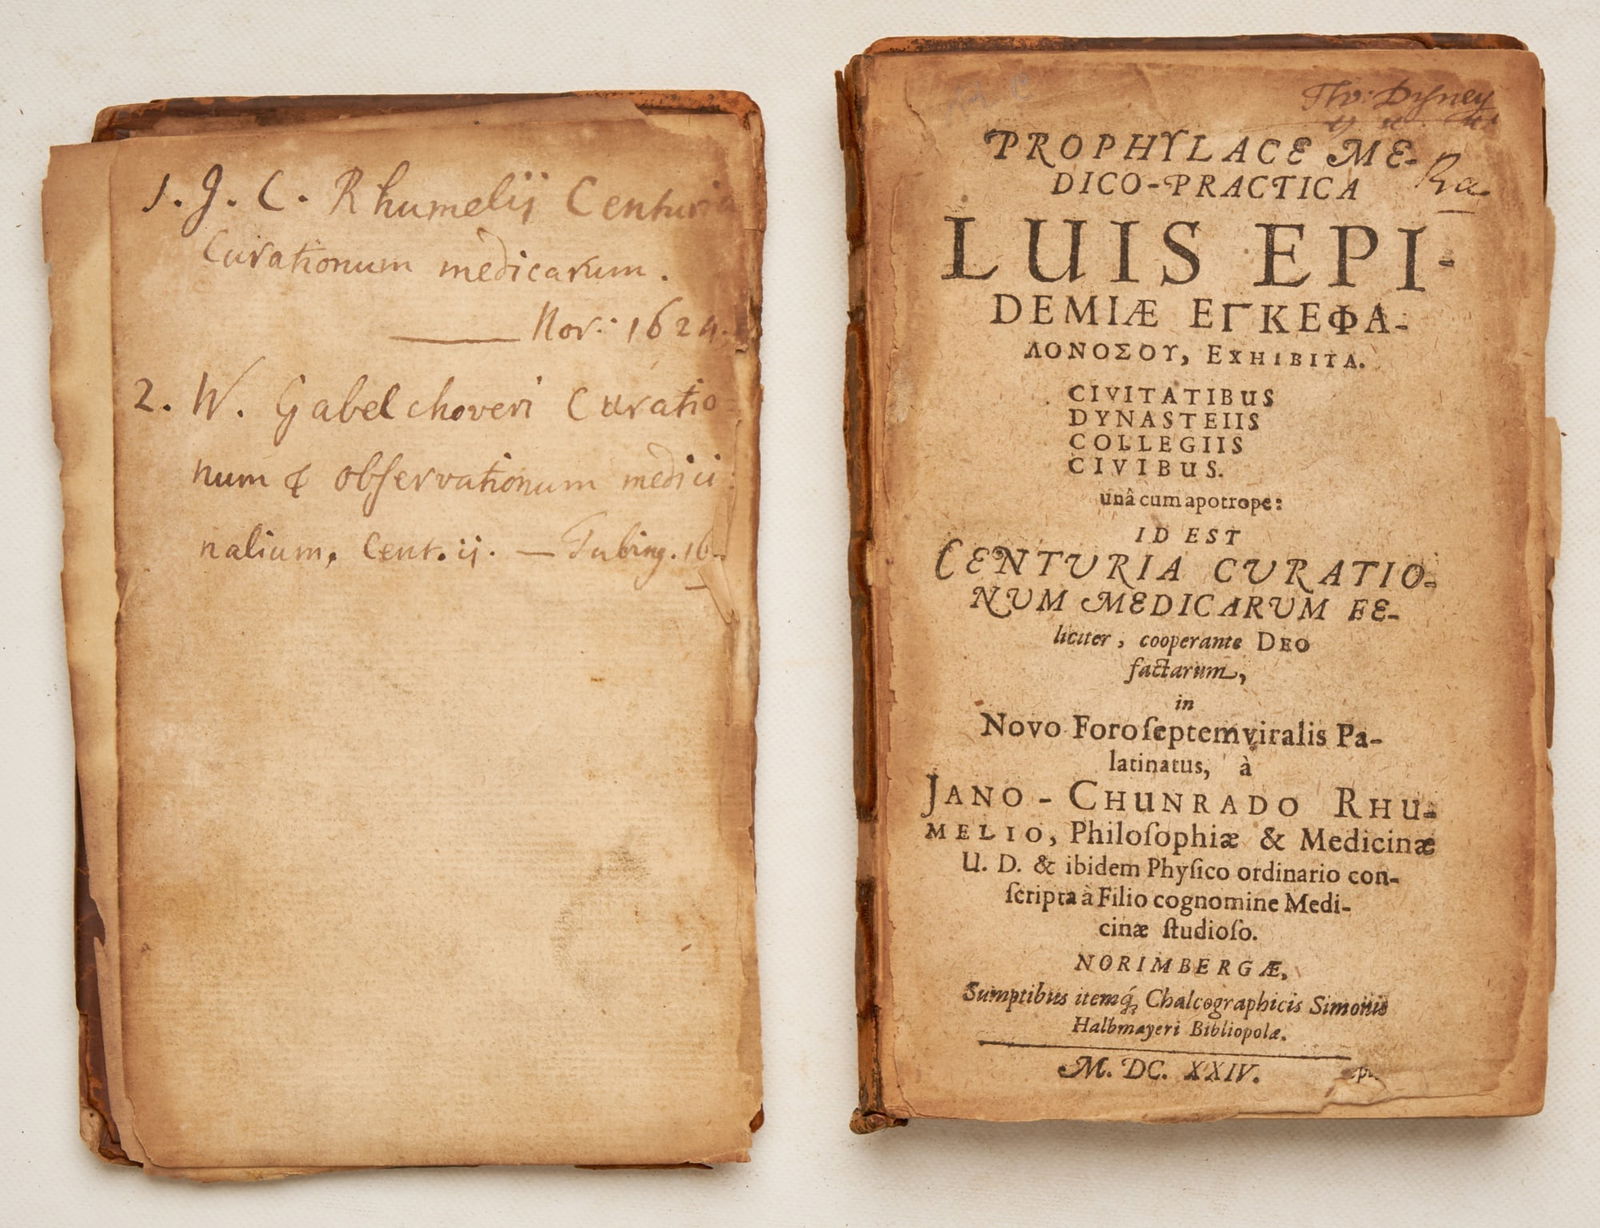 1. J. C. Rhumelij Centuria
Curationum medicarum.
Nor: 1624.
2. W. Gabelchoveri Curatio
num & obſervationum medici
nalium, Cent. ij. — Tubing. 16
Tho: Dyſney
PROPHYLACE ME-
DICO-PRACTICA
Ra
LUIS EPI-
DEMIÆ ΕΓΚΕΦΑ-
ΛΟΝΟΣΟΥ, EXHIBITA.
CIVITATIBUS
DYNASTEIIS
COLLEGIIS
CIVIBUS.
unâ cum apotrope:
ID EST
CENTURIA CURATIO-
NUM MEDICARUM FE-
liciter, cooperante DEO
factarum,
in
Novo Foro ſeptemviralis Pa-
latinatus, à
JANO-CHUNRADO RHU-
MELIO, Philoſophiæ & Medicinæ
U. D. & ibidem Phyſico ordinario con-
ſcripta à Filio cognomine Medi-
cinæ ſtudioſo.
NORIMBERGÆ,
Sumptibus itemq́; Chalcographicis Simonis
Halbmayeri Bibliopolæ.
M. DC. XXIV.